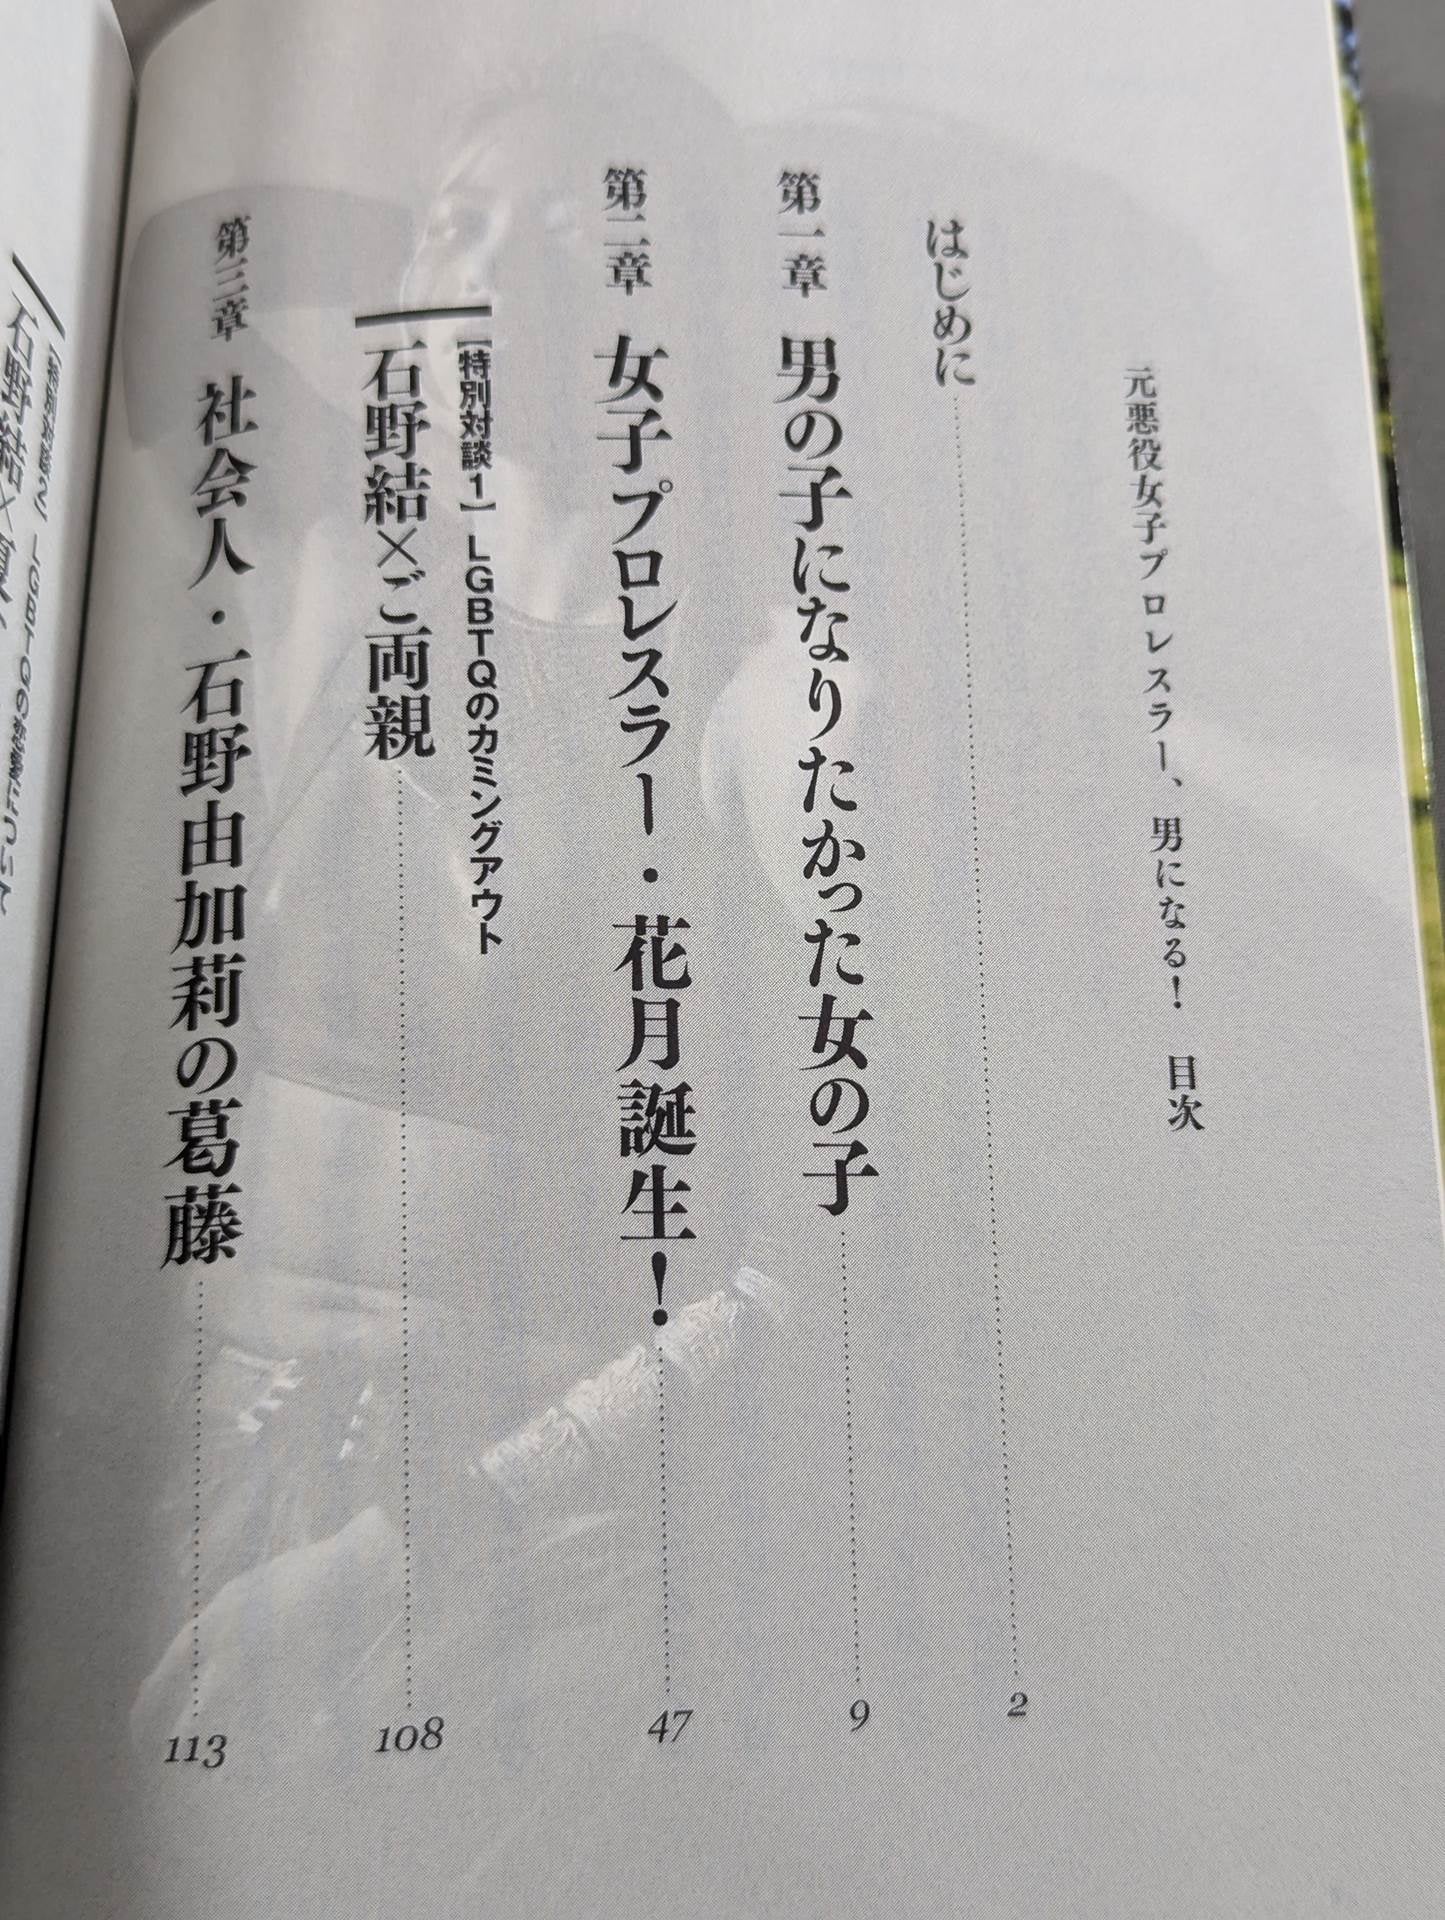 元悪役女子プロレスラー、男になる！　目次
はじめに 2
第一章 男の子になりたかった女の子 9
第二章 女子プロレスラー・花月誕生！ 47
【特別対談1】LGBTQのカミングアウト
石野結×ご両親 108
第三章 社会人・石野由加莉の葛藤 113
LGBTQの
石野結×